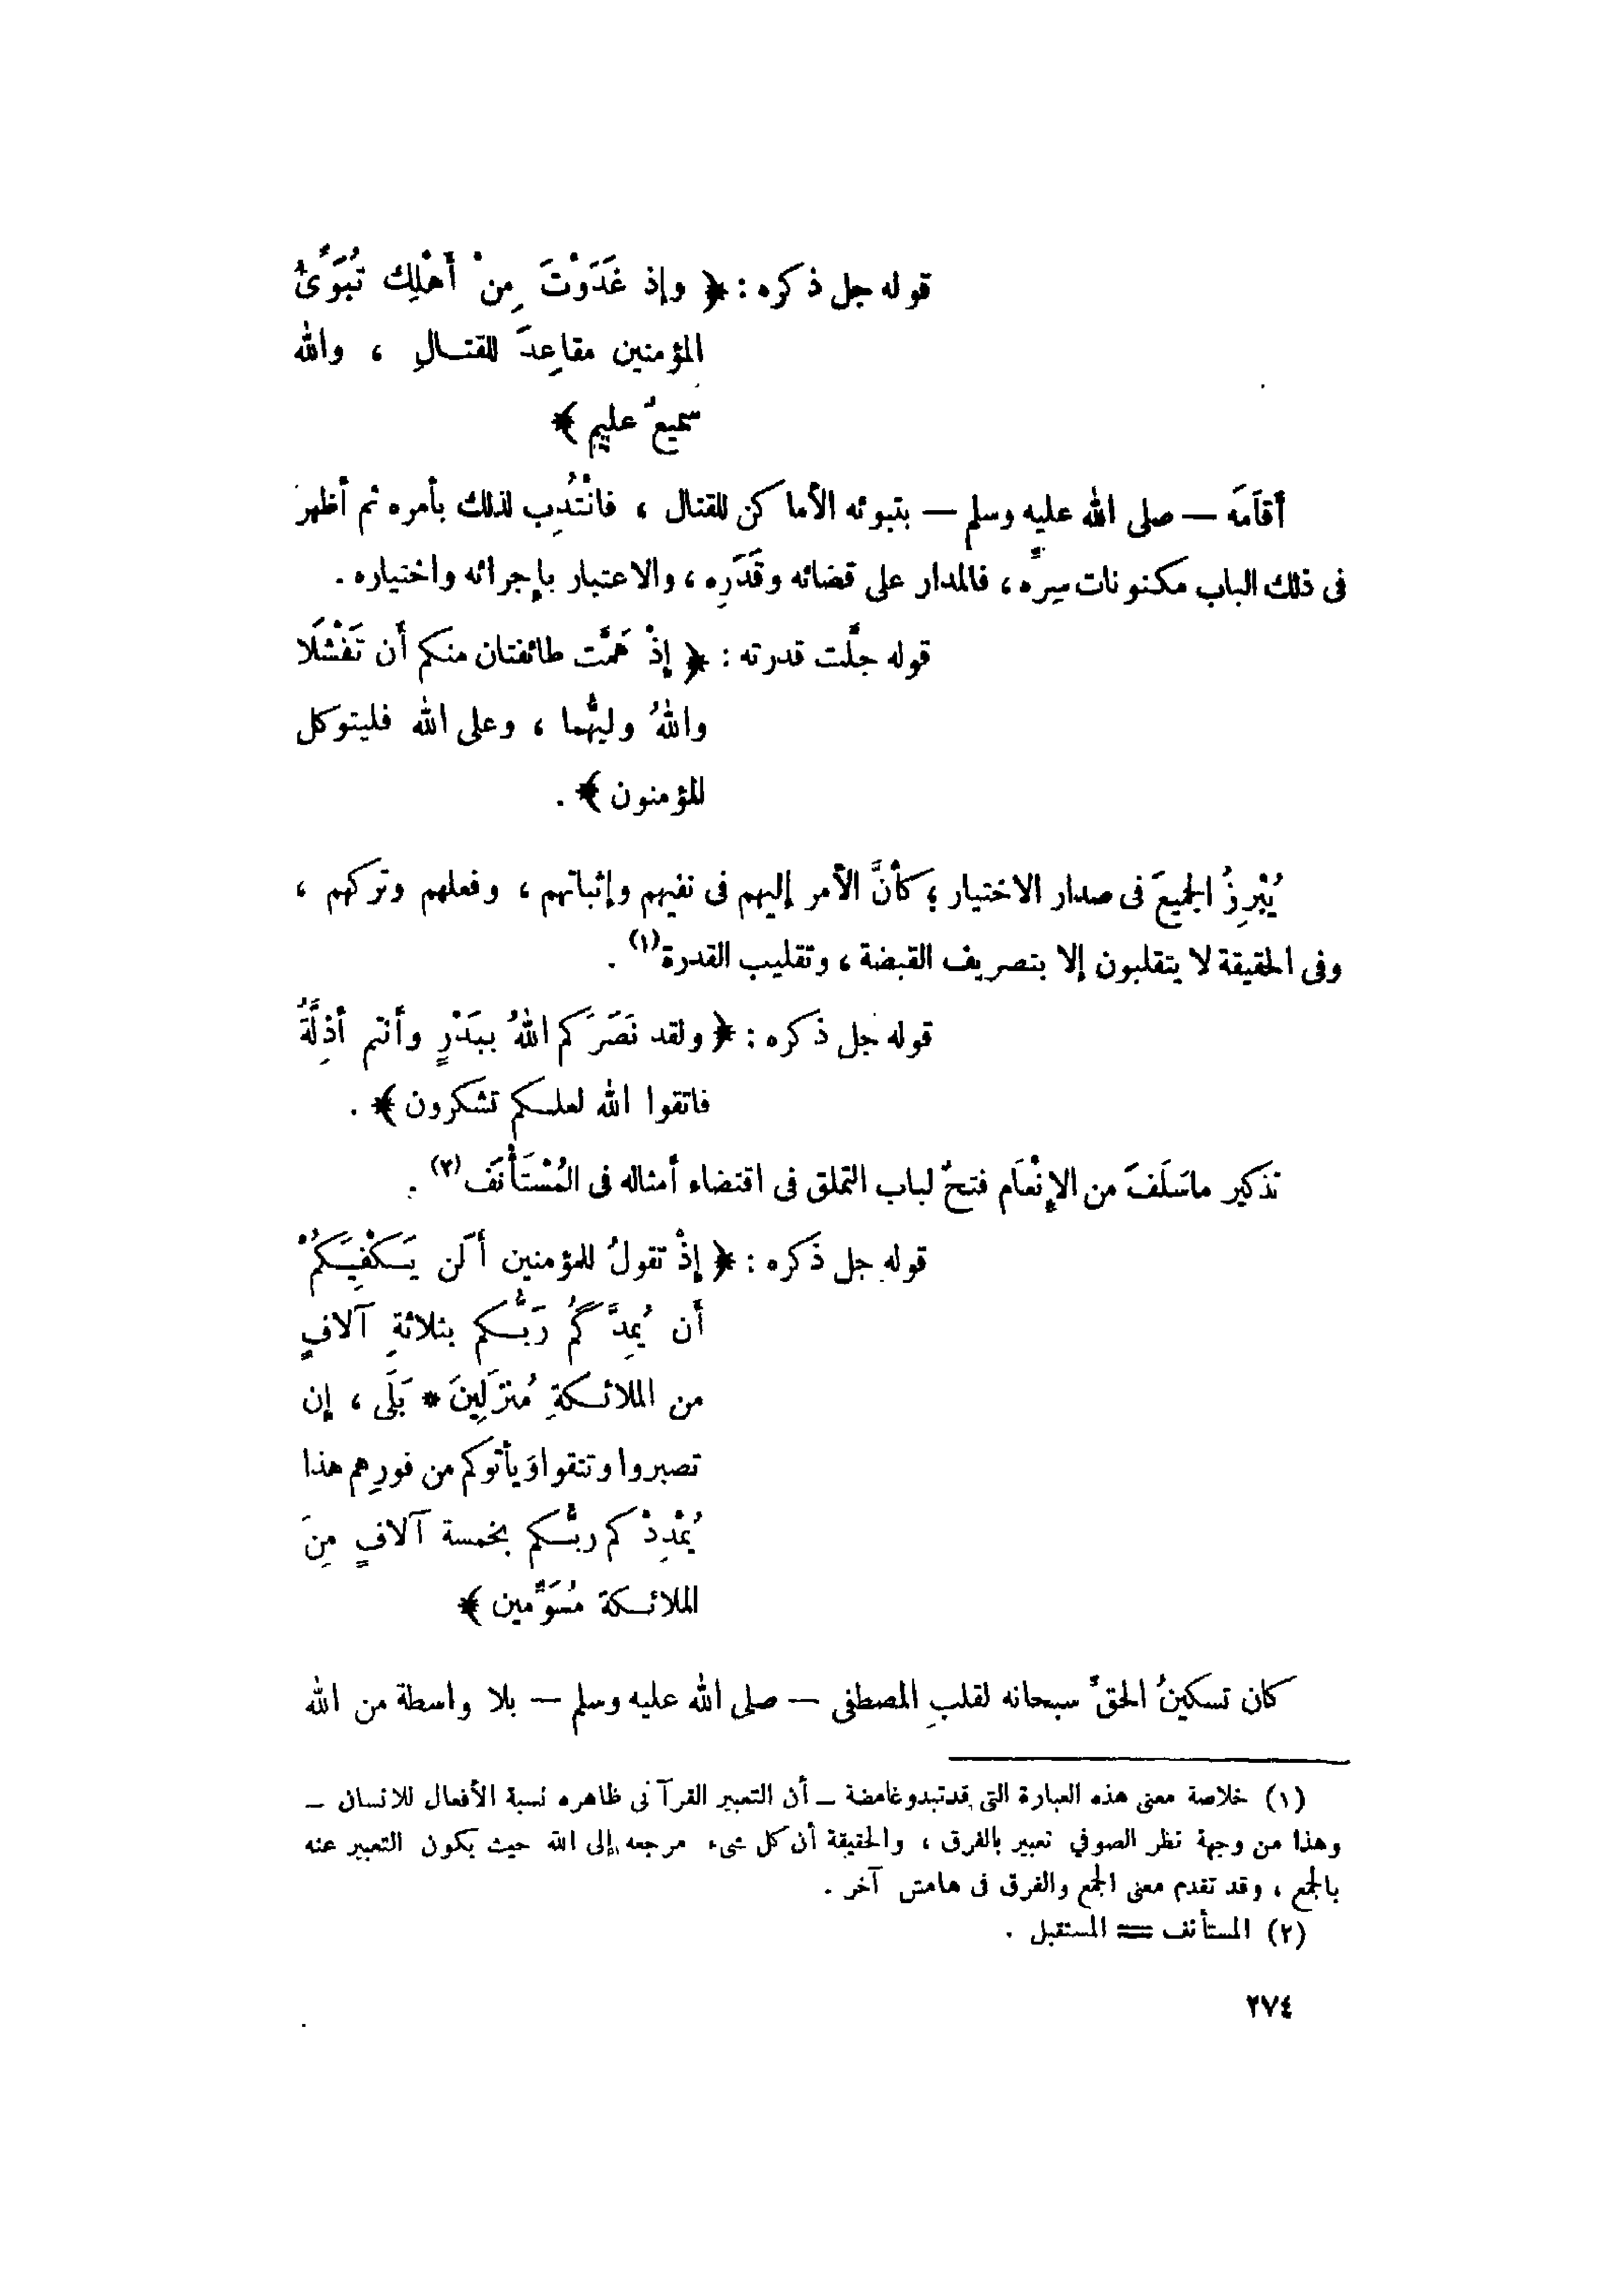 قوله جل ذكره : ﴿ وإذ غَدَوْتَ مِنْ أَهْلِكَ تُبَوِّئُ
المؤمنين مقاعِدَ للقتـالِ ، والله
سميعٌ عليم ﴾
أقامَه — صلى الله عليه وسلم — بتبوئه الأماكن للقتال ، فانْتُدِب لذلك بأمره ثم أظهر
فى ذلك الباب مكنونات سِرِّه ، فالمدار على قضائه وقَدَرِه ، والاعتبار بإجرائه واختياره .
قوله جلَّت قدرته : ﴿ إذْ هَمَّت طائفتان منكم أَن تَفْشَلَا
واللهُ وليُّهما ، وعلى الله فليتوكل
المؤمنون ﴾ .
يُبْرِزُ الجميعَ فى صدار الاختيار ؛ كأنَّ الأمر إليهم فى نفيهم وإثباتهم ، وفعلهم وتركهم ،
وفى الحقيقة لا يتقلبون إلا بتصريف القبضة ، وتقليب القدرة(١) .
قوله جل ذكره : ﴿ ولقد نَصَرَكم اللهُ ببَدْرٍ وأنتم أذِلَّةٌ
فاتقوا الله لعلـكم تشكرون ﴾ .
تذكير ماسَلَفَ من الإنْعَام فتحٌ لباب التملق فى اقتضاء أمثاله فى المُسْتَأْنَف(٢) .
قوله جل ذكره : ﴿ إذْ تقولُ للمؤمنين ألَن يَـكْفِيَـكُمْ
أَن يُمِدَّكُمُ رَبُّـكم بثلاثةِ آلافٍ
من الملائـكةِ مُنزَلِينَ * بَلَى ، إن
تصبروا وتتقوا وَيأتوكم من فورِهم هذا
يُمْدِدْكم ربُّـكم بخمسة آلافٍ مِنَ
الملائـكة مُسَوِّمين ﴾
كان تسكينُ الحقِّ سبحانه لقلبِ المصطفى — صلى الله عليه وسلم — بلا واسطة من الله
(١) خلاصة معنى هذه العبارة التى قد تبدو غامضة – أن التعبير القرآنى ظاهره نسبة الأفعال للانسان –
وهذا من وجهة نظر الصوفي تعبير بالفرق ، والحقيقة أن كل شىء مرجعه إلى الله حيث يكون التعبير عنه
بالجمع ، وقد تقدم معنى الجمع والفرق فى هامش آخر .
(٢) المستأنف = المستقبل .
٢٧٤